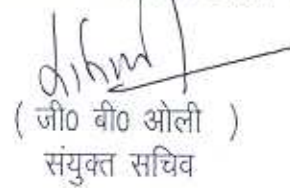 ( जी0 बी0 ओली )
संयुक्त सचिव